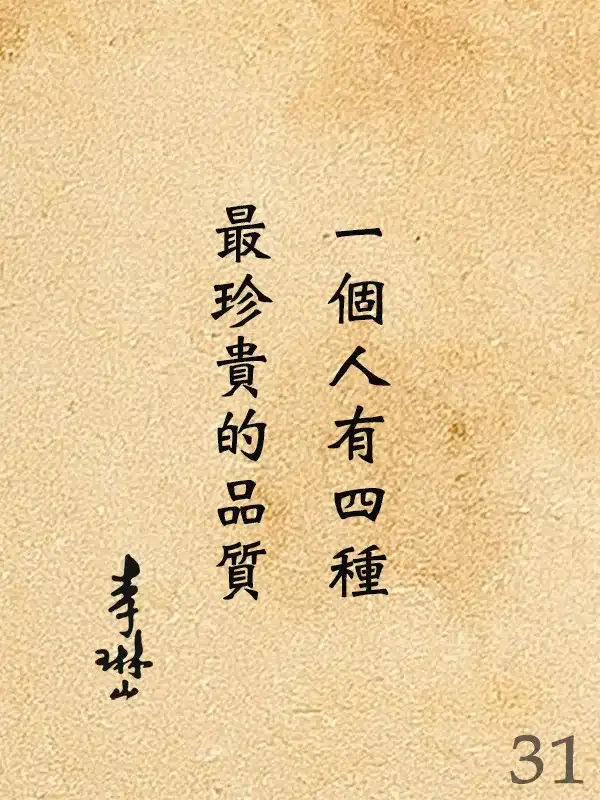 一個人有四種
最珍貴的品質
李琳山
31